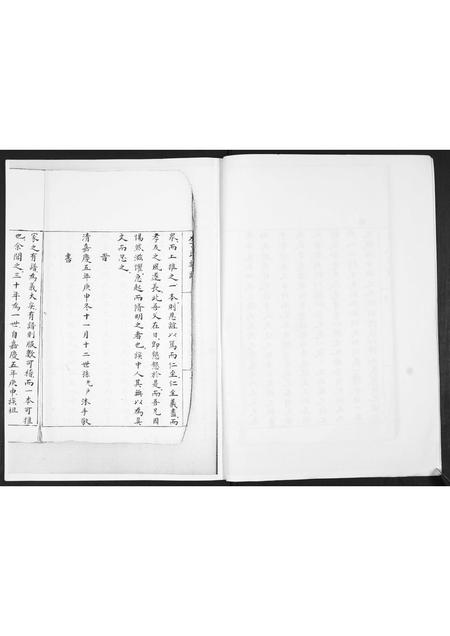 眾而上推之一本則恩誼以篤而仁至仁至義盡而
孝友之風遂長此吾父在日即惓惓於是而吾兄因
惕然滋懼急起而清明之者也族中人其無以為具
文而忽之
旹
清嘉慶五年庚申冬十一月十二世孫允沐手敬
書
家之有譜為義大矣有譜則服數可稽而一本可推
也余聞之三十年為一世自嘉慶五年庚申族祖